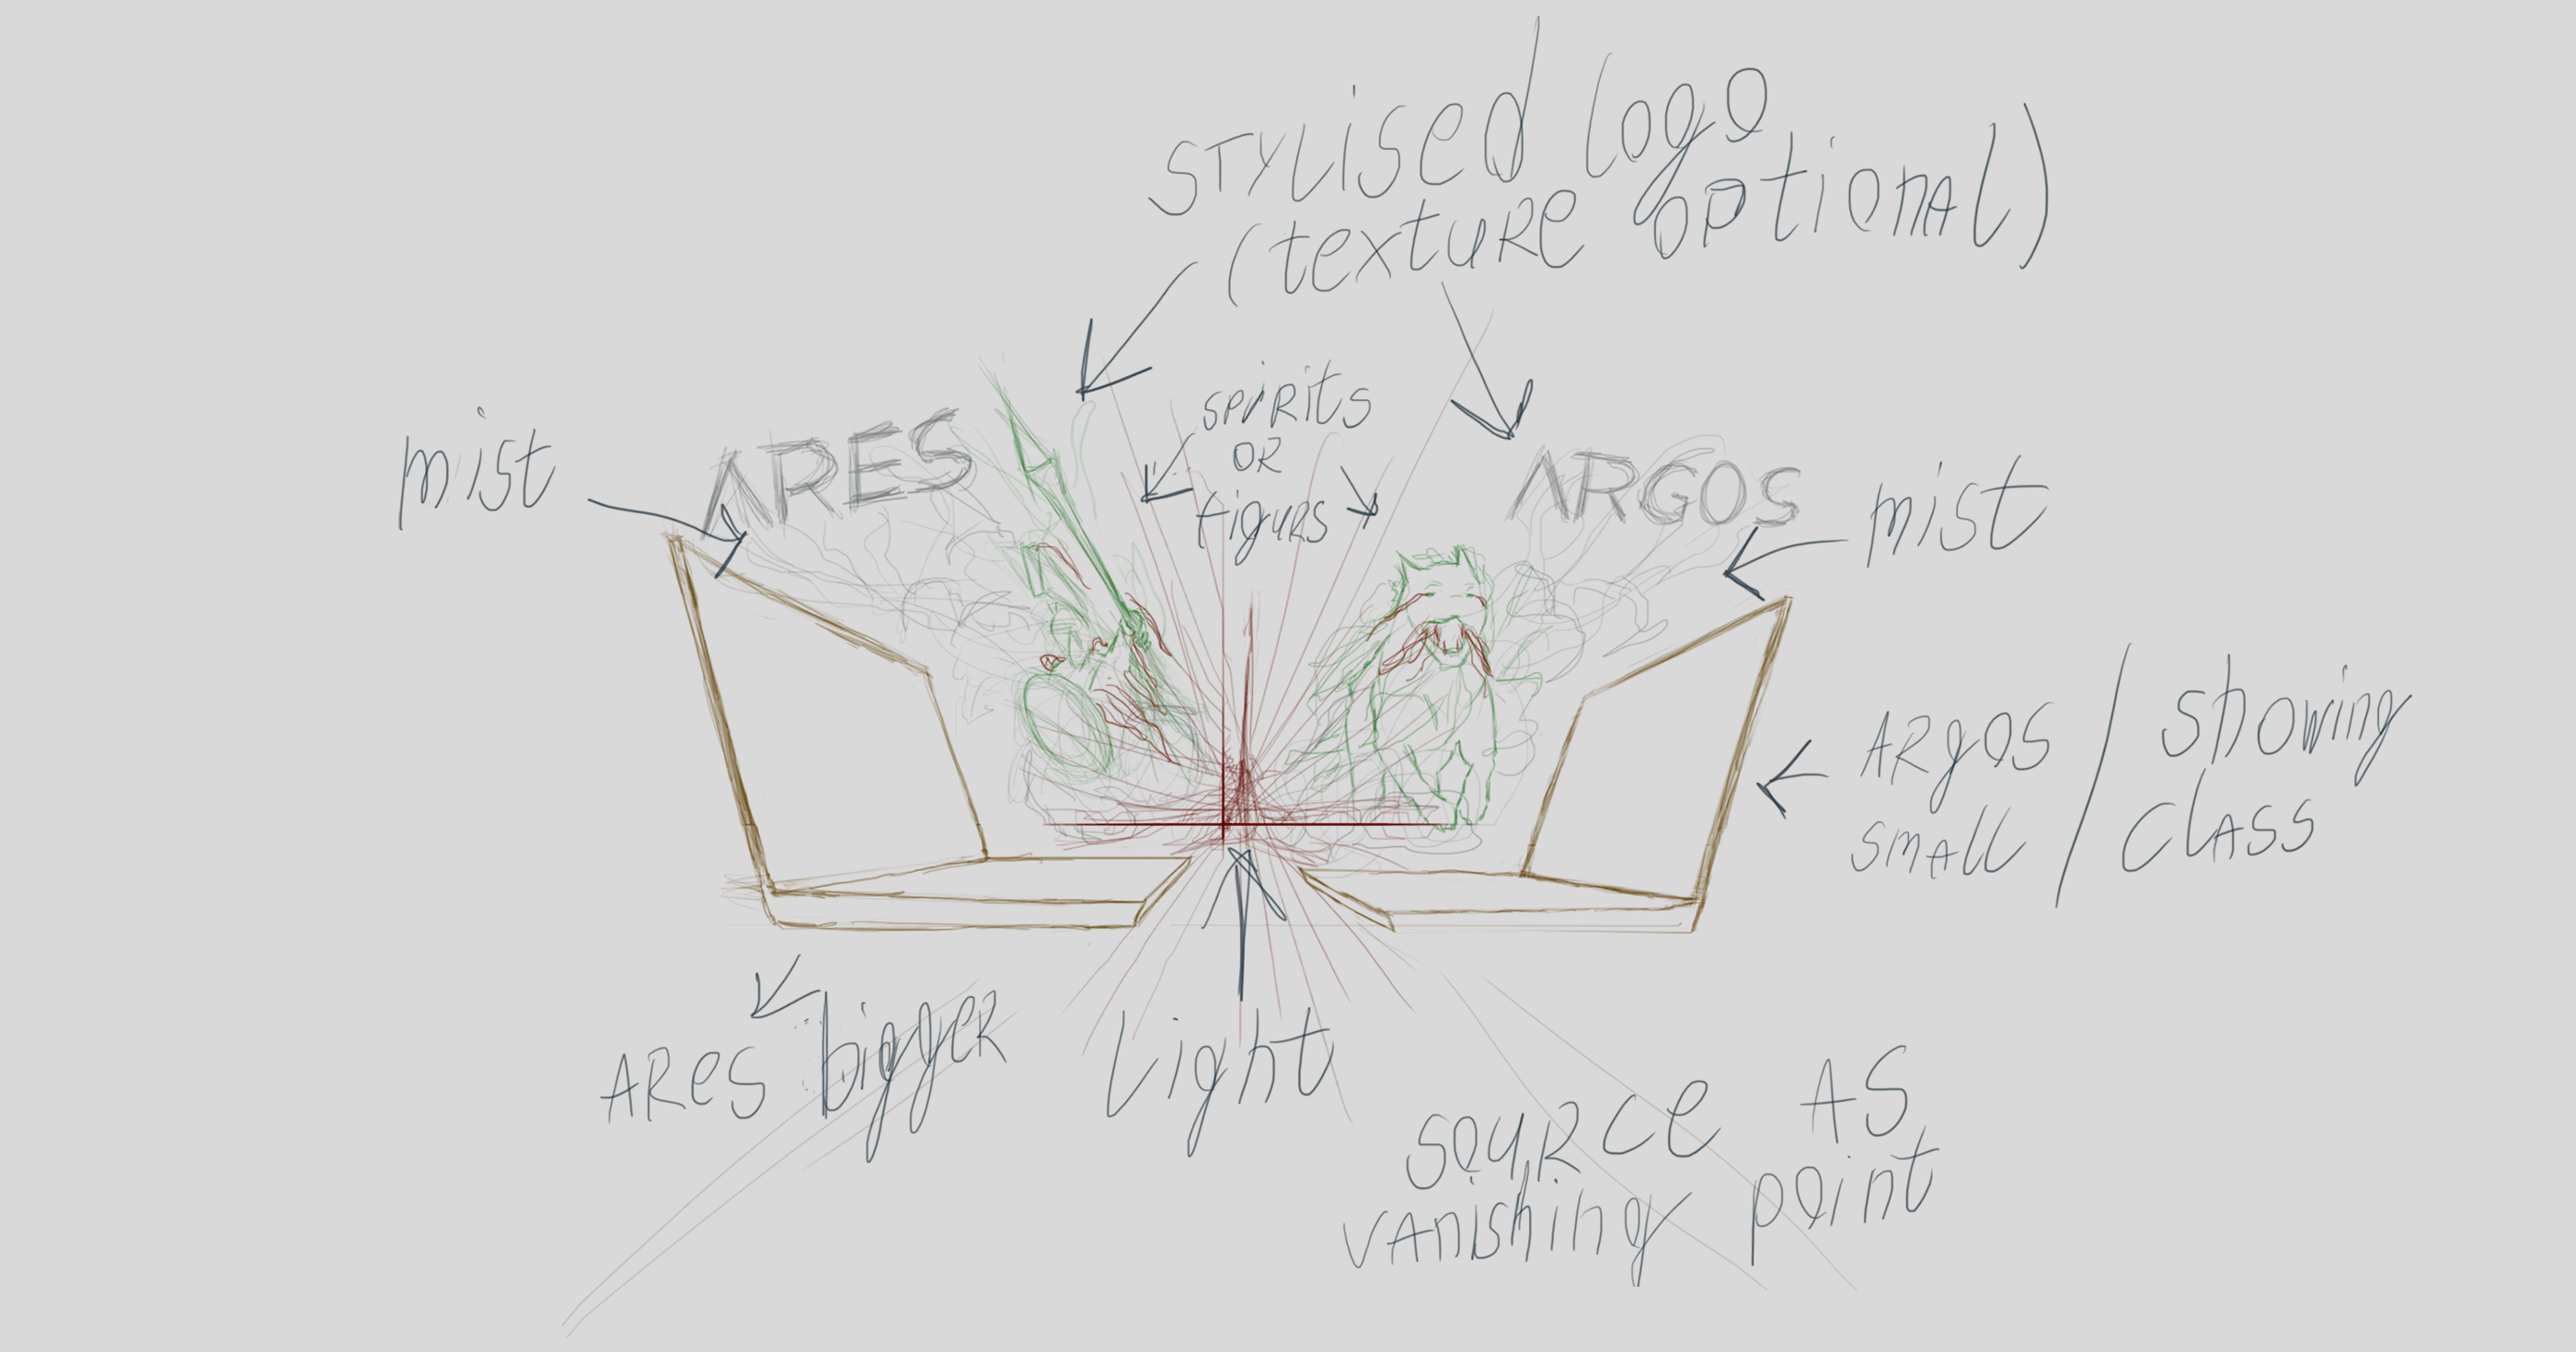 STYLISED logo
(texture optional)
spirits
OR
figurs
mist
ARES
ARGOS
mist
ARgOS / Showing
small / Class
ARes bigger
Light
source AS
vanishing point